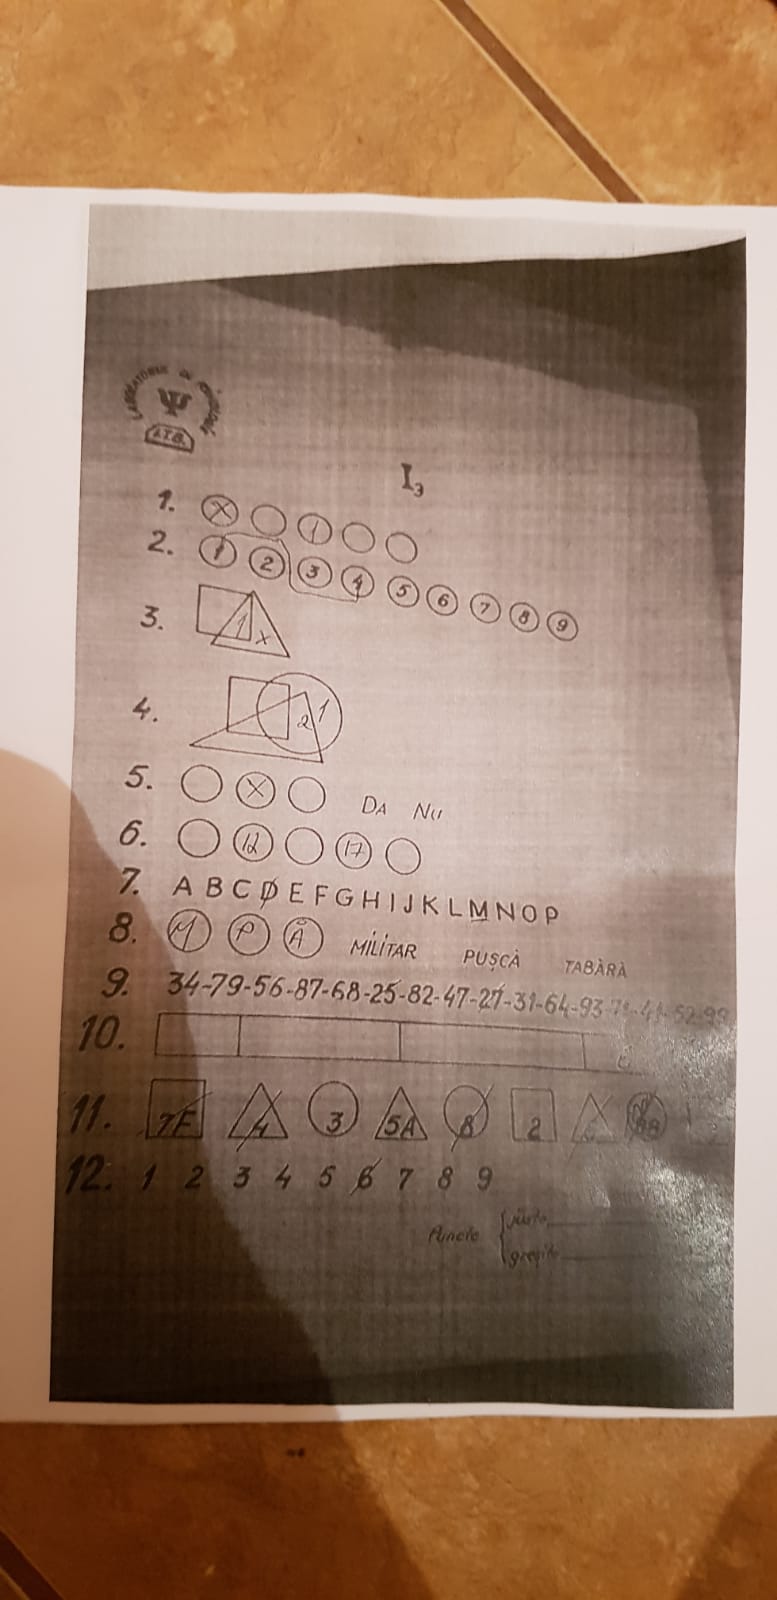 LABORATORUL DE PSIHOLOGIE
Ψ
I₃
1. X 1
2. 1 2 3 4 5 6 7 8 9
3. 1 X
4. 2 1
5. X DA NU
6. 12 17
7. A B C D E F G H I J K L M N O P
8. M P Ă MILITAR PUȘCĂ TABĂRĂ
9. 34-79-56-87-68-25-82-47-27-31-64-93
10.
11. 7F 4 3 5A 8 2
12. 1 2 3 4 5 6 7 8 9
Puncte
juste
greșite